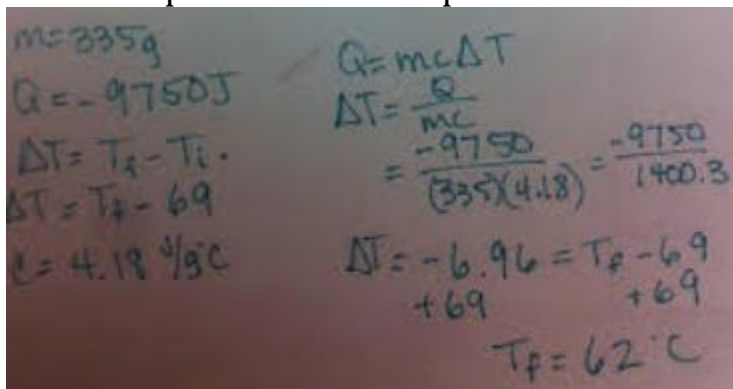 m=335g
Q=-9750J
ΔT= T_f - T_i.
ΔT = T_f - 69
C= 4.18 J/g°C
Q= mcΔT
ΔT= Q/mc
= -9750/(335)(4.18) = -9750/1400.3
ΔT= -6.96 = T_f - 69
+69 +69
T_f = 62°C